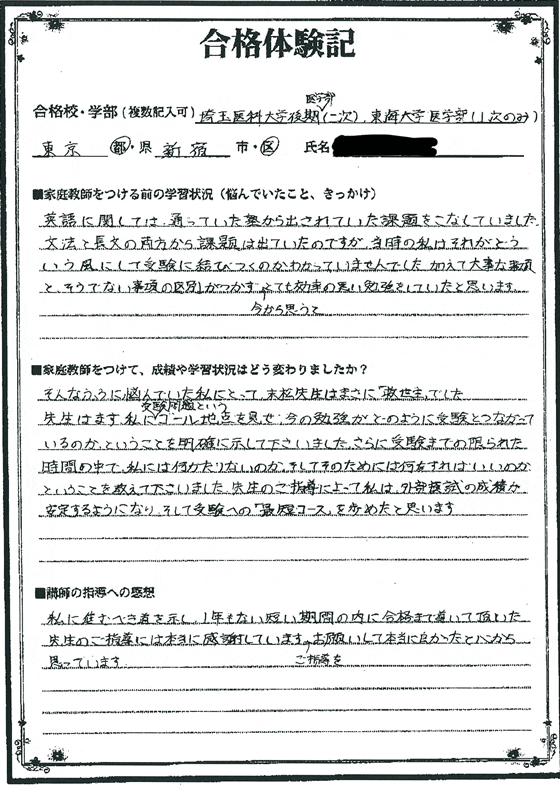 合格体験記
合格校・学部（複数記入可） 埼玉医科大学後期医学部(二次)、東海大学医学部(1次のみ)
東京 都・県 新宿 市・区 氏名
■家庭教師をつける前の学習状況（悩んでいたこと、きっかけ）
英語に関しては、通っていた塾から出されていた課題をこなしていました。
文法と長文の両方から課題は出ていたのですが、当時の私はそれがどう
いう風にして受験に結びつくのかわかっていませんでした。加えて大事な事項
と、そうでない事項の区別がつかず、今から思うととても効率の悪い勉強をしていたと思います。
■家庭教師をつけて、成績や学習状況はどう変わりましたか？
そんなふうに悩んでいた私にとって、末松先生はまさに「救世主」でした
先生はまず、私に受験問題というゴール地点を見せ、今の勉強がどのように受験とつながって
いるのか、ということを明確に示して下さいました。さらに受験までの限られた
時間の中で、私には何がたりないのか、そしてそのためには何をすればいいのか
ということを教えて下さいました。先生のご指導によって私は、外部模試の成績が
安定するようになり、そして受験への「最短コース」を歩めたと思います
■講師の指導への感想
私に進むべき道を示し、1年もない短い期間の内に合格まで導いて頂いた
先生のご指導には本当に感謝しています。ご指導をお願いして本当に良かったと心から
思っています.